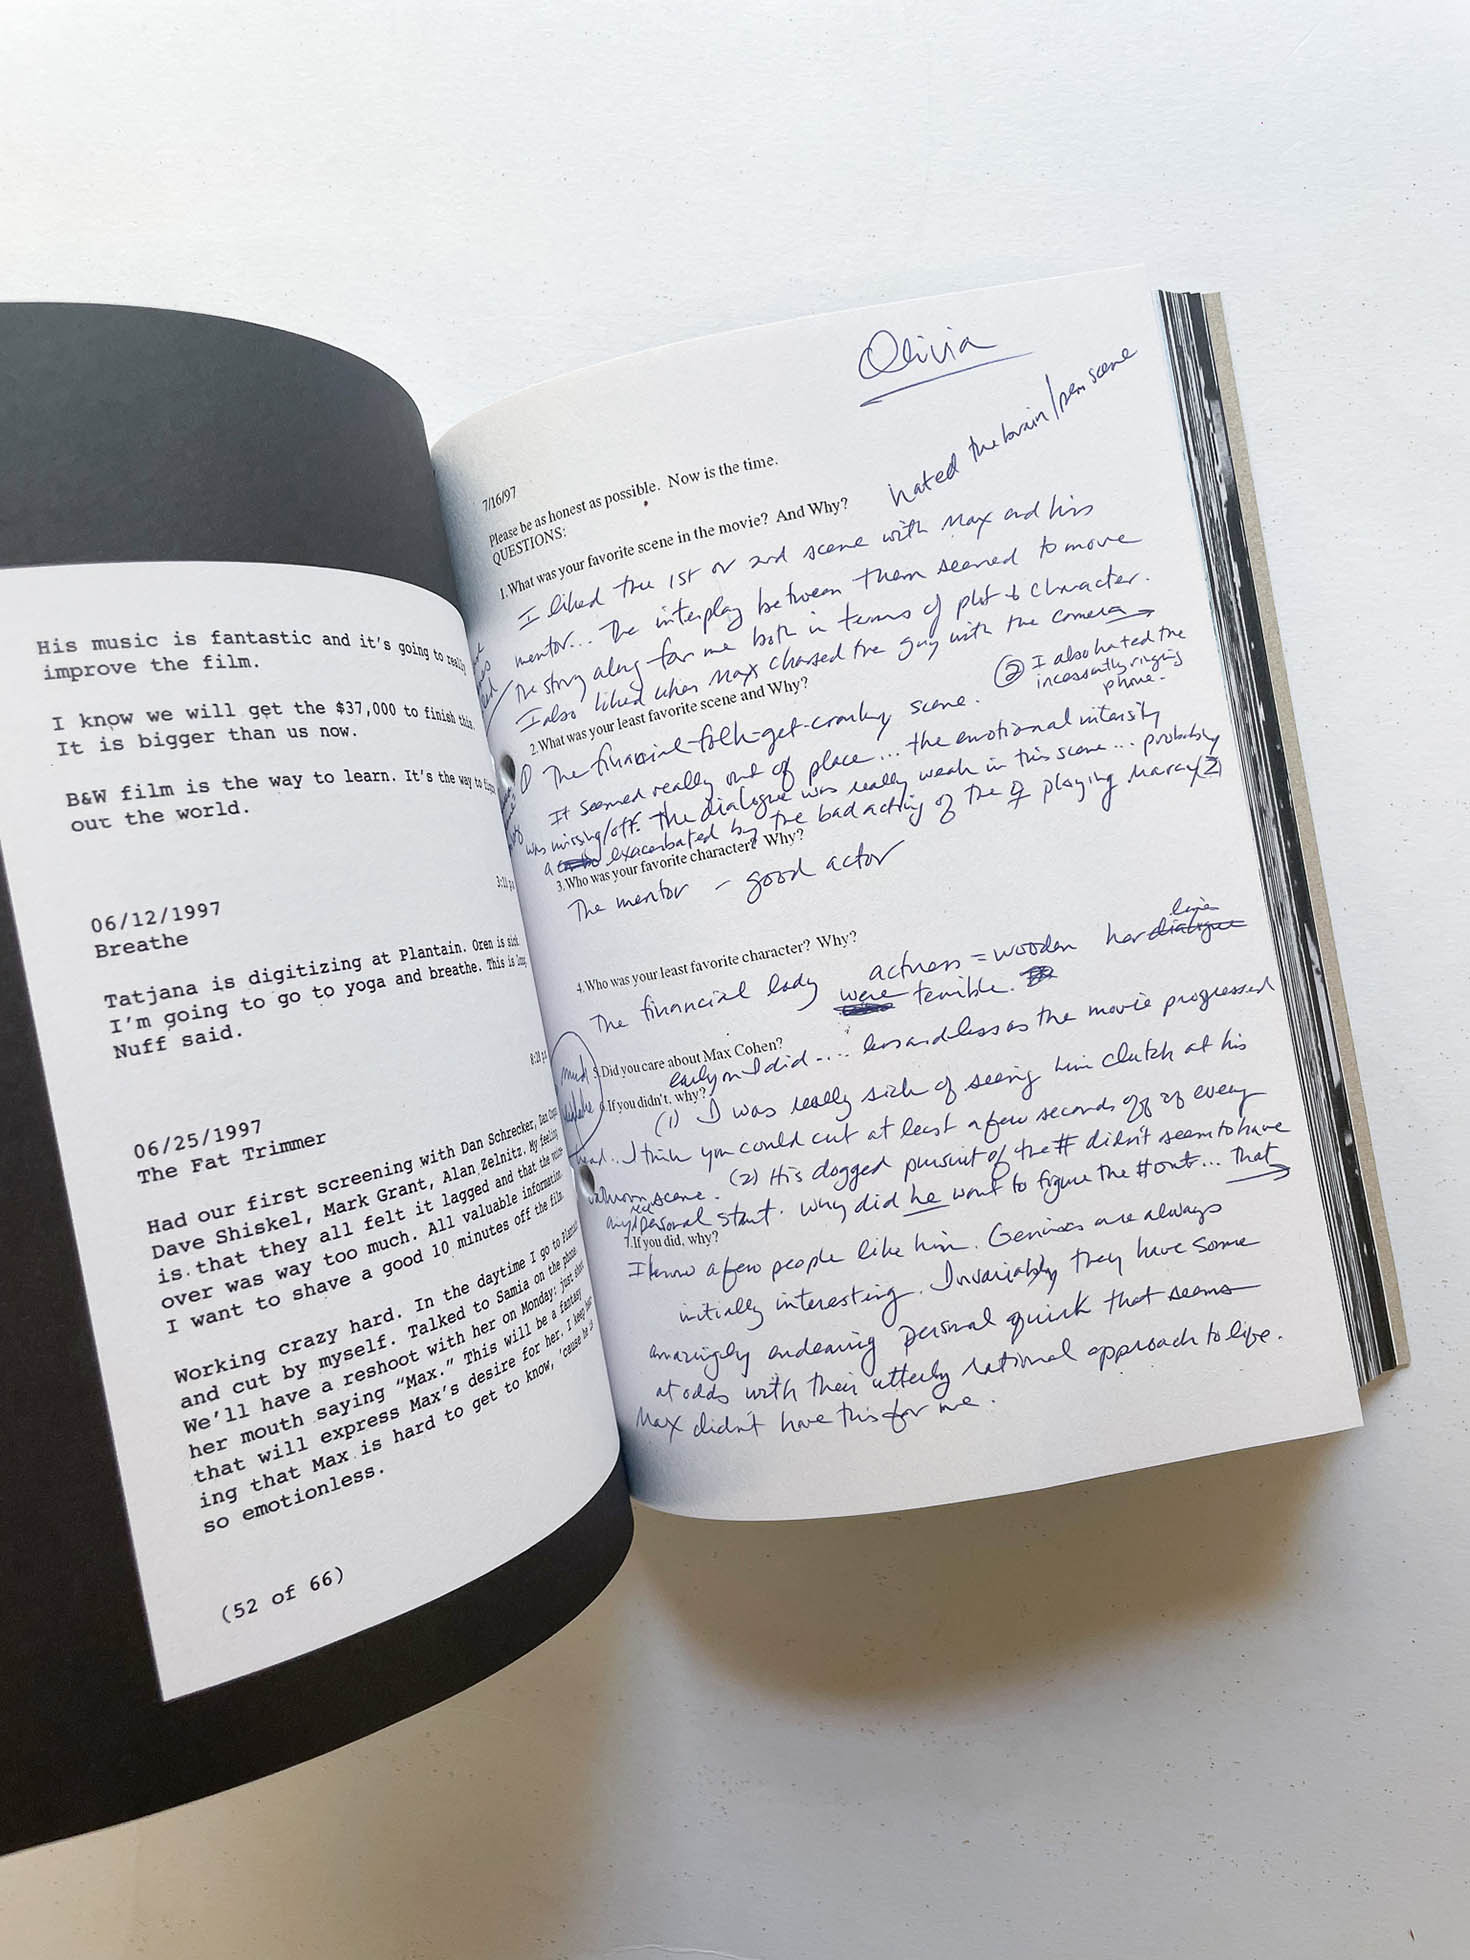 His music is fantastic and it's going to really
improve the film.
I know we will get the $37,000 to finish this.
It is bigger than us now.
B&W film is the way to learn. It's the way to
out the world.
3:20 p.
06/12/1997
Breathe
Tatjana is digitizing at Plantain. Oren is sick.
I'm going to go to yoga and breathe. This is
Nuff said.
8:20 p.
06/25/1997
The Fat Trimmer
Had our first screening with Dan Schrecker, Dan
Dave Shiskel, Mark Grant, Alan Zelnitz. My feeling
is that they all felt it lagged and that the voice
over was way too much. All valuable information.
I want to shave a good 10 minutes off the film.
Working crazy hard. In the daytime I go to Plantain
and cut by myself. Talked to Samia on the phone.
We'll have a reshoot with her on Monday: just
her mouth saying "Max." This will be a fantasy
that will express Max's desire for her. I keep
ing that Max is hard to get to know, 'cause he is
so emotionless.
(52 of 66)
Olivia
hated the brain/pen scene
7/16/97
Please be as honest as possible. Now is the time.
QUESTIONS:
1.What was your favorite scene in the movie? And Why?
I liked the 1st or 2nd scene with Max and his
mentor... The interplay between them seemed to move
the story along for me both in terms of plot & character.
I also liked when Max chased the guy with the camera
2.What was your least favorite scene and Why?
② I also hated the
incessantly ringing
phone.
① The financial-folk-get-cranky scene.
It seemed really out of place... the emotional intensity
was missing/off. The dialogue was really weak in this scene... probably
exacerbated by the bad acting of the ♀ playing Marcy(?)
3.Who was your favorite character? Why?
The mentor - good actor
4.Who was your least favorite character? Why?
The financial lady actress = wooden her dialogue
lines
were terrible.
5.Did you care about Max Cohen?
early on I did.... less and less as the movie progressed
6.If you didn't, why?
(1) I was really sick of seeing him clutch at his
head... I think you could cut at least a few seconds off of every
scene. (2) His dogged pursuit of the # didn't seem to have
any real personal start. Why did he want to figure the # out... that
7.If you did, why?
I know a few people like him. Geniuses are always
initially interesting. Invariably they have some
amazingly endearing personal quirk that seems
at odds with their utterly rational approach to life.
Max didn't have this for me.